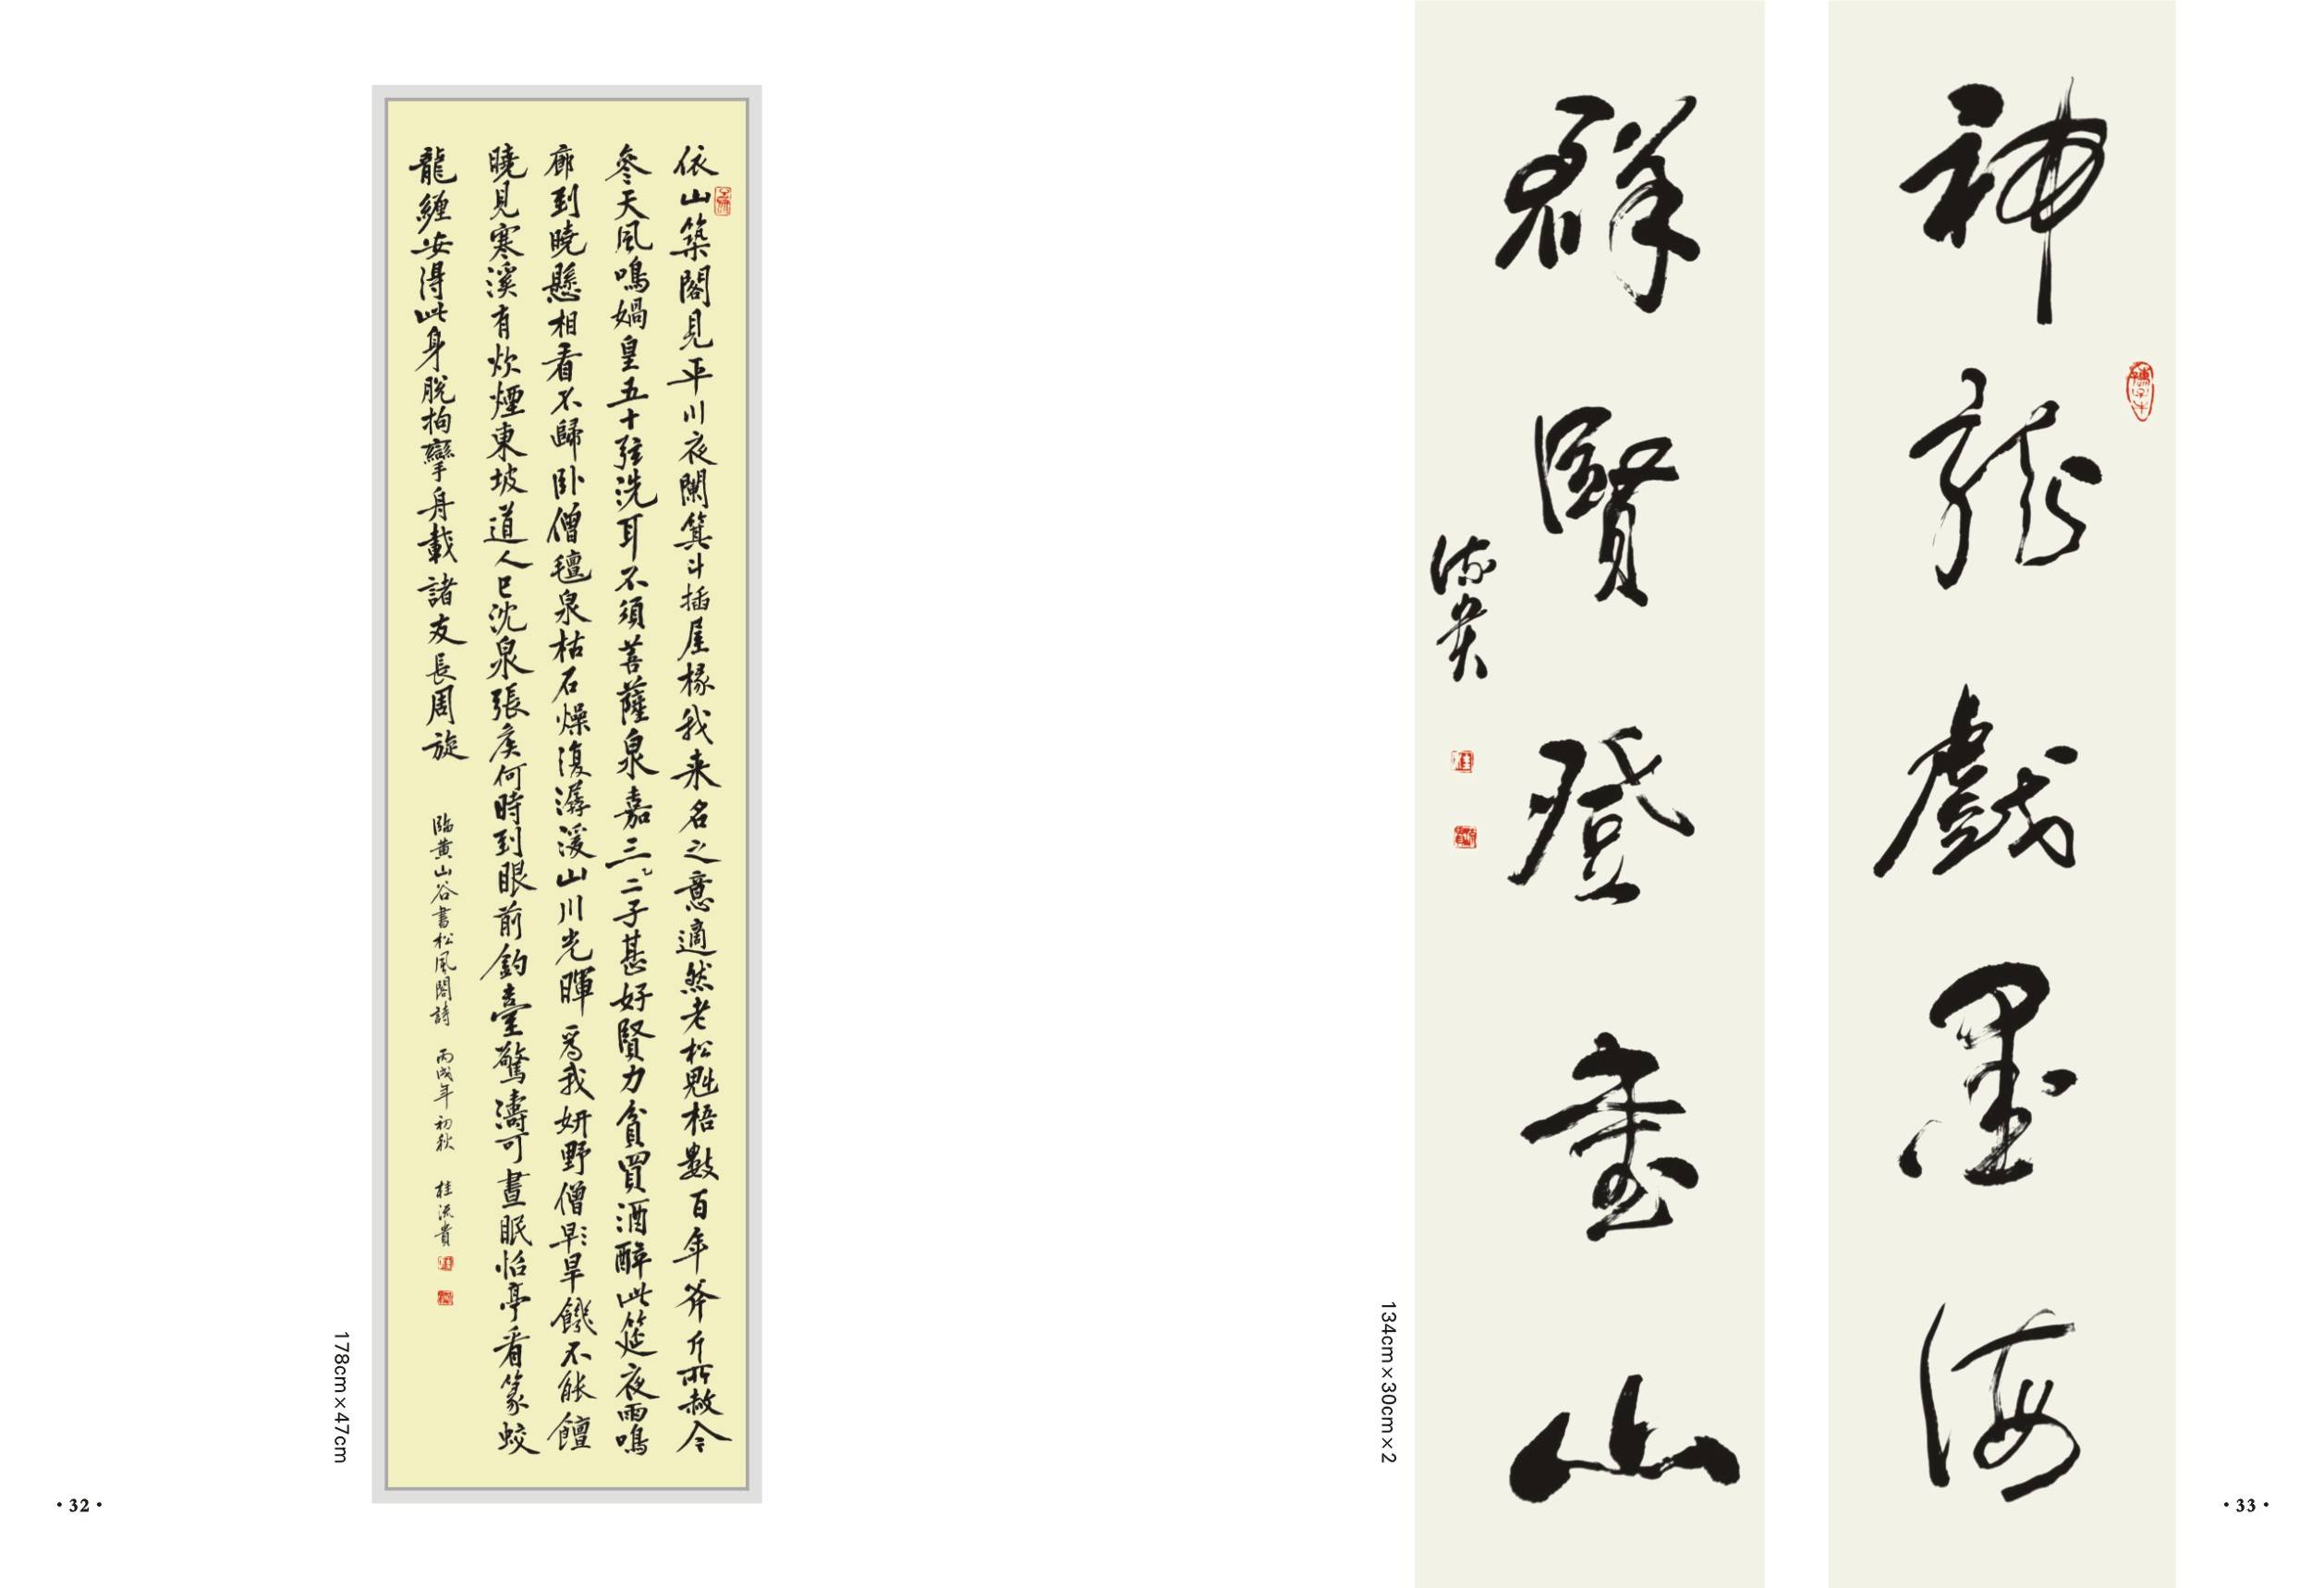 依山築閣見平川夜闌箕斗插屋椽我来名之意適然老松魁梧數百年斧斤所赦今
參天風鳴媧皇五十弦洗耳不須菩薩泉嘉三二子甚好賢力貧買酒醉此筵夜雨鳴
廊到曉懸相看不歸卧僧氊泉枯石燥復潺湲山川光暉爲我妍野僧早旱饑不能饘
曉見寒溪有炊煙東坡道人已沈泉張侯何時到眼前釣臺驚濤可晝眠怡亭看篆蛟
龍纏安得此身脫拘攣舟載諸友長周旋
臨黄山谷書松風閣詩 丙戌年初秋 桂流貴
178cm×47cm
·32·
神龍戲墨海
群賢登書山
流貴
134cm×30cm×2
·33·